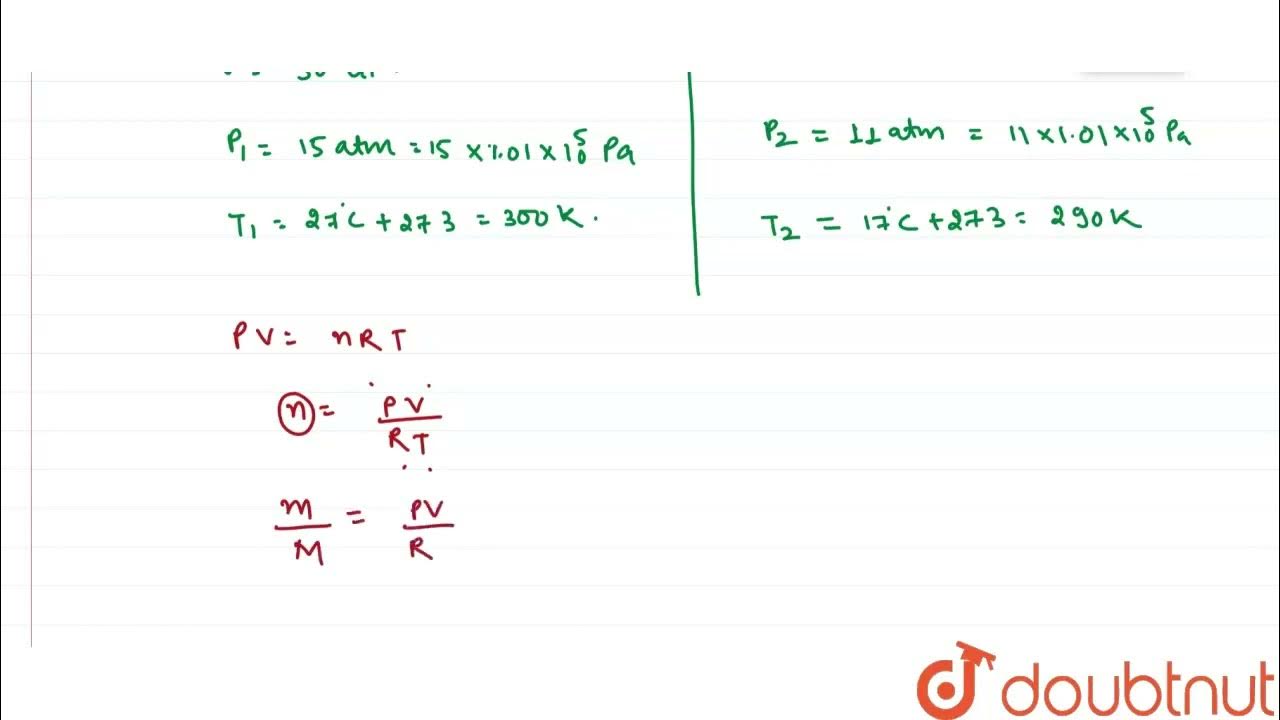 P₁ = 15 atm = 15 × 1.01 × 10⁵ Pa
T₁ = 27°C + 273 = 300 K.
P₂ = 11 atm = 11 × 1.01 × 10⁵ Pa
T₂ = 17°C + 273 = 290 K
PV = nRT
n = PV / RT
m / M = PV / R
doubtnut